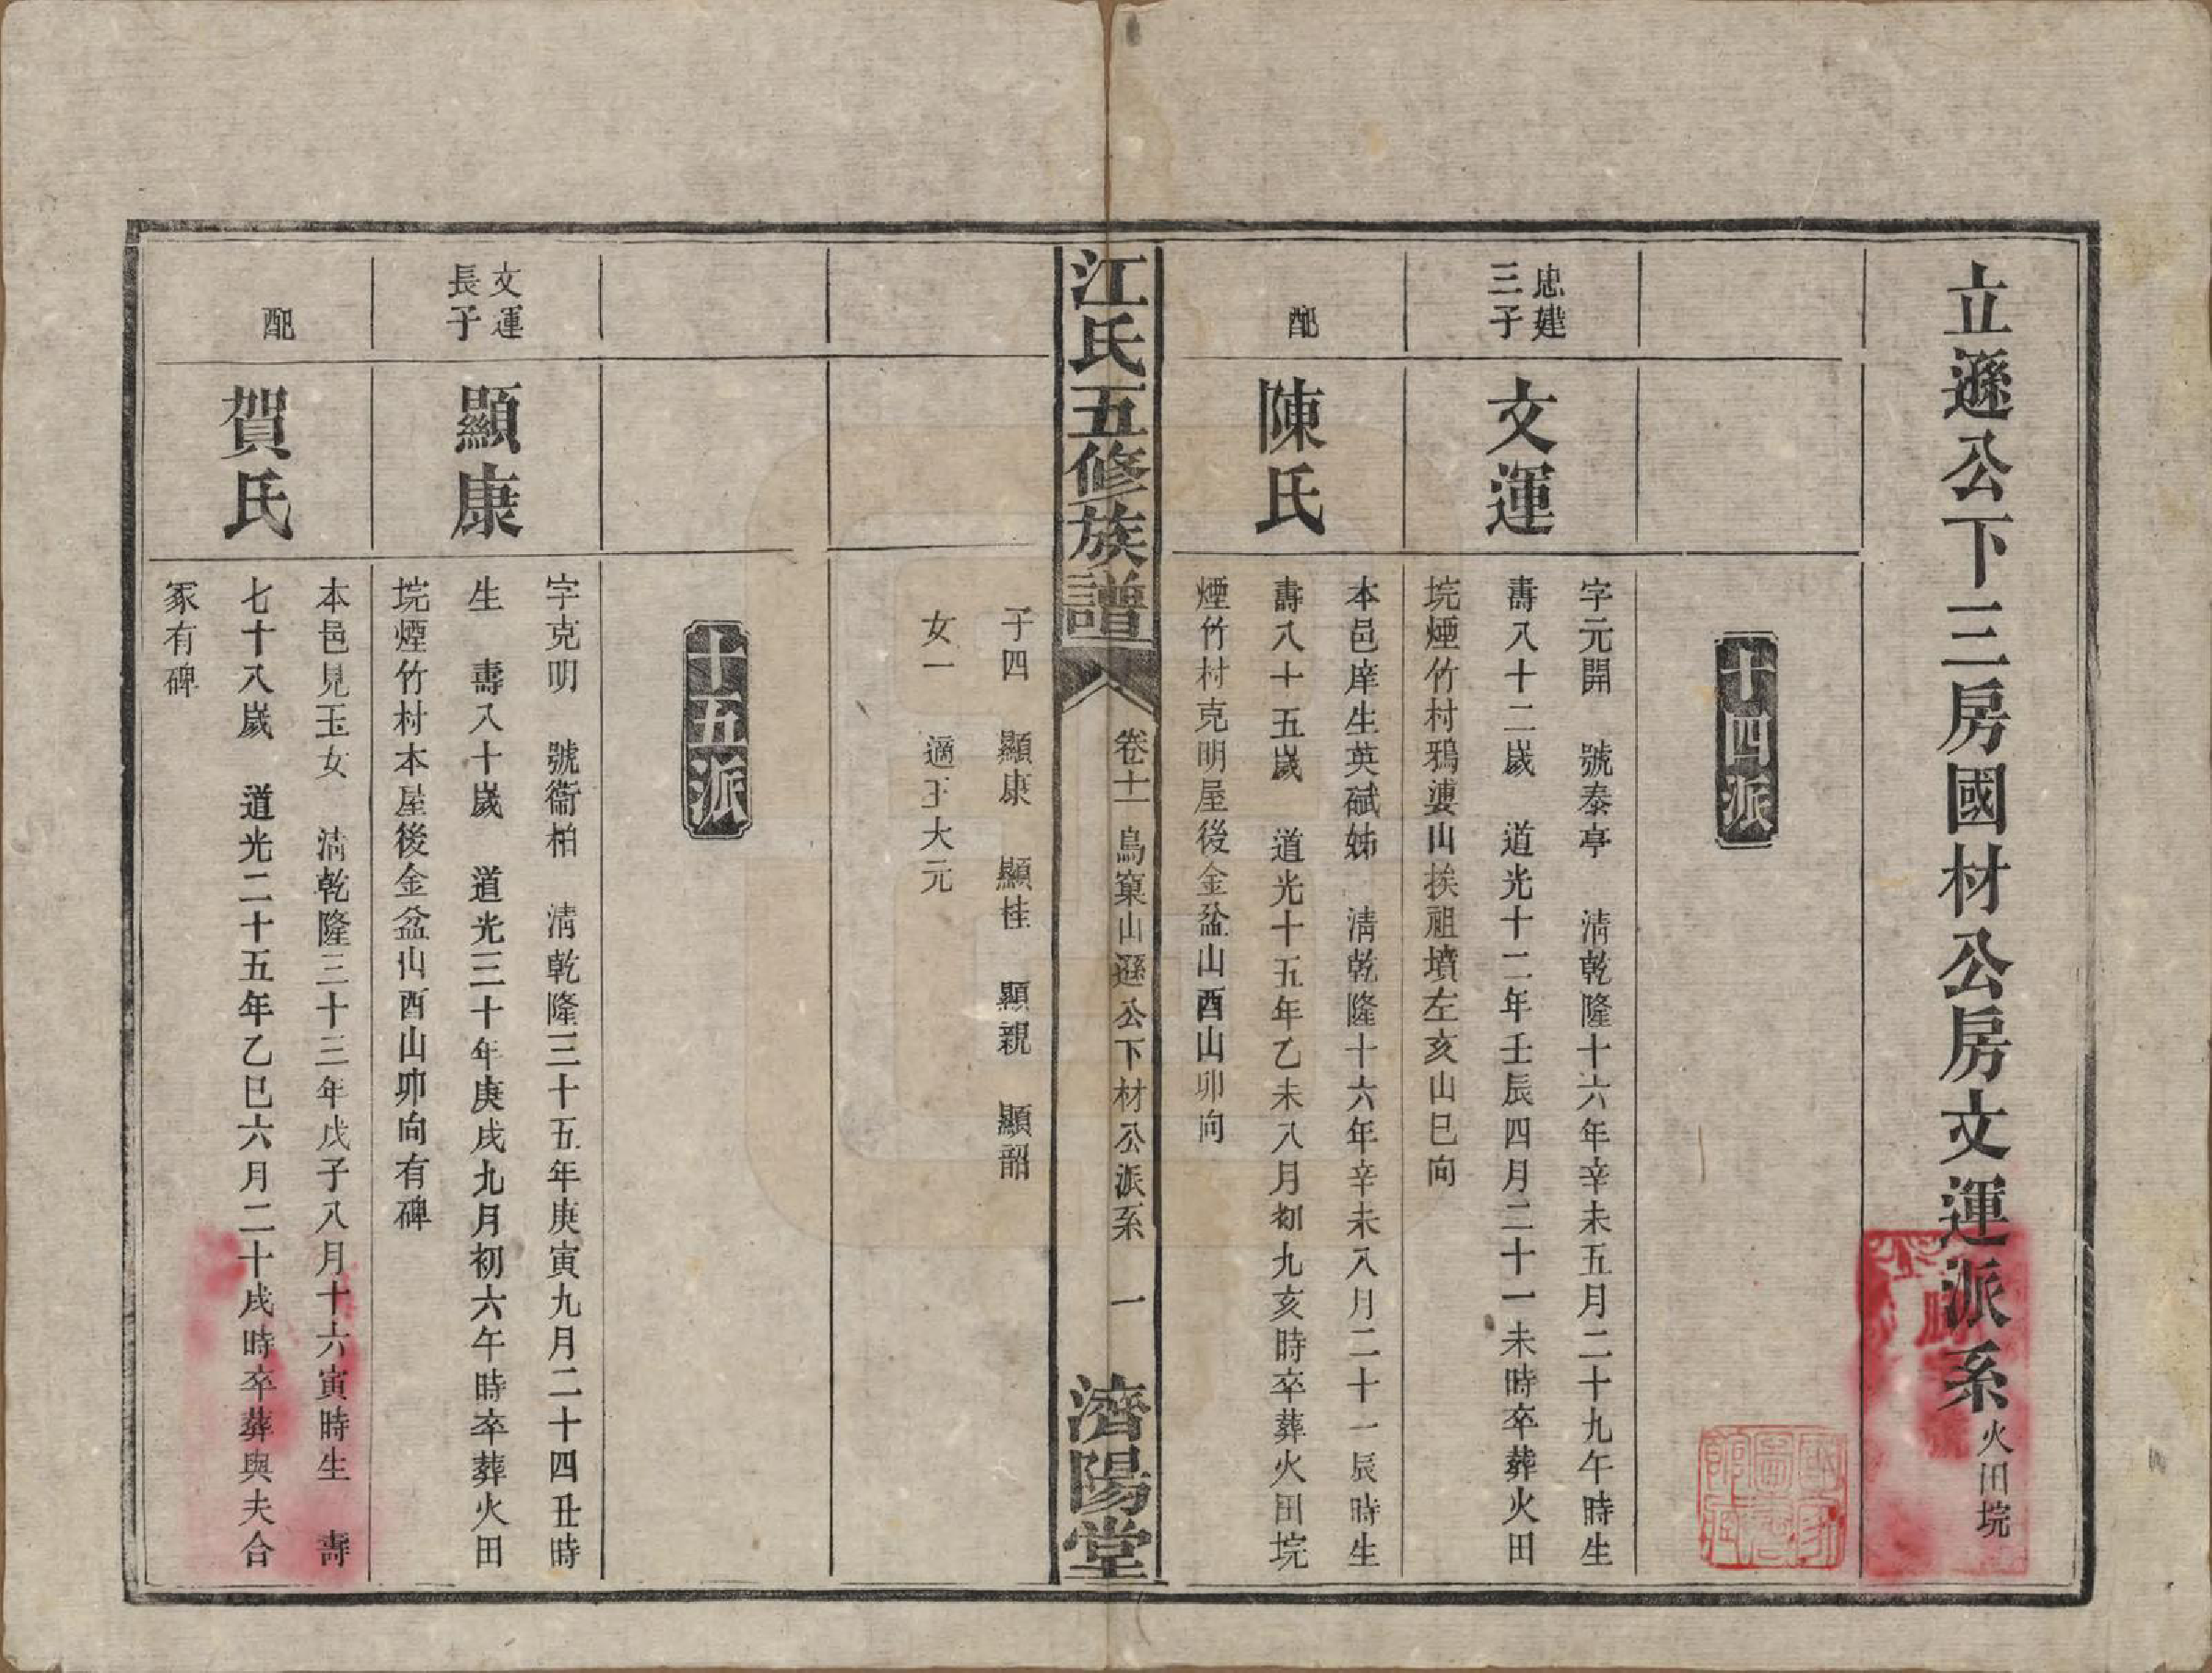 立遜公下三房國材公房文運派系 火田垸
十四派
忠建
三子
文運
字元開　號泰亭　清乾隆十六年辛未五月二十九午時生
壽八十二歲　道光十二年壬辰四月二十一未時卒葬火田
垸煙竹村鴉婆山挨祖墳左亥山巳向
配
陳氏
本邑庠生英斌姊　清乾隆十六年辛未八月二十一辰時生
壽八十五歲　道光十五年乙未八月初九亥時卒葬火田垸
煙竹村克明屋後金盆山酉山卯向
江氏五修族譜
卷十一烏窠山遜公下材公派系　一
濟陽堂
子四　顯康　顯桂　顯親　顯韶
女一　適王大元
十五派
文運
長子
顯康
字克明　號衞柏　清乾隆三十五年庚寅九月二十四丑時
生　壽八十歲　道光三十年庚戌九月初六午時卒葬火田
垸煙竹村本屋後金盆山酉山卯向有碑
配
賀氏
本邑見玉女　清乾隆三十三年戊子八月十六寅時生　壽
七十八歲　道光二十五年乙巳六月二十戌時卒葬與夫合
冢有碑